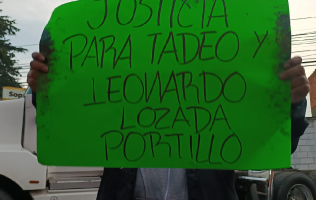 JUSTICIA
PARA TADEO Y
LEONARDO
LOZADA
PORTILLO